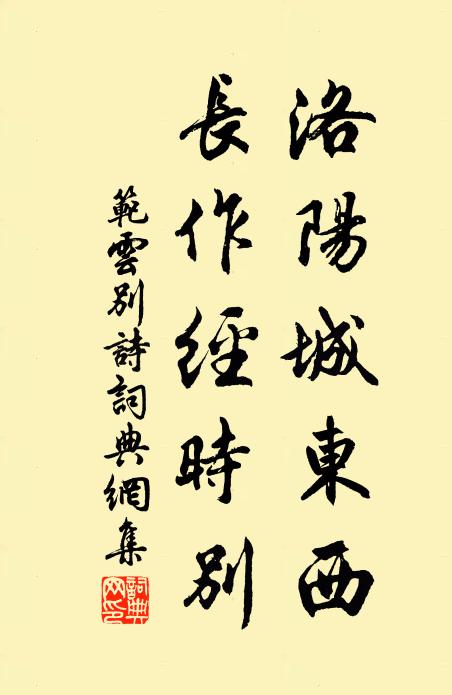 洛陽城東西
長作經時別
範雲別詩詞典網集
詞典網印